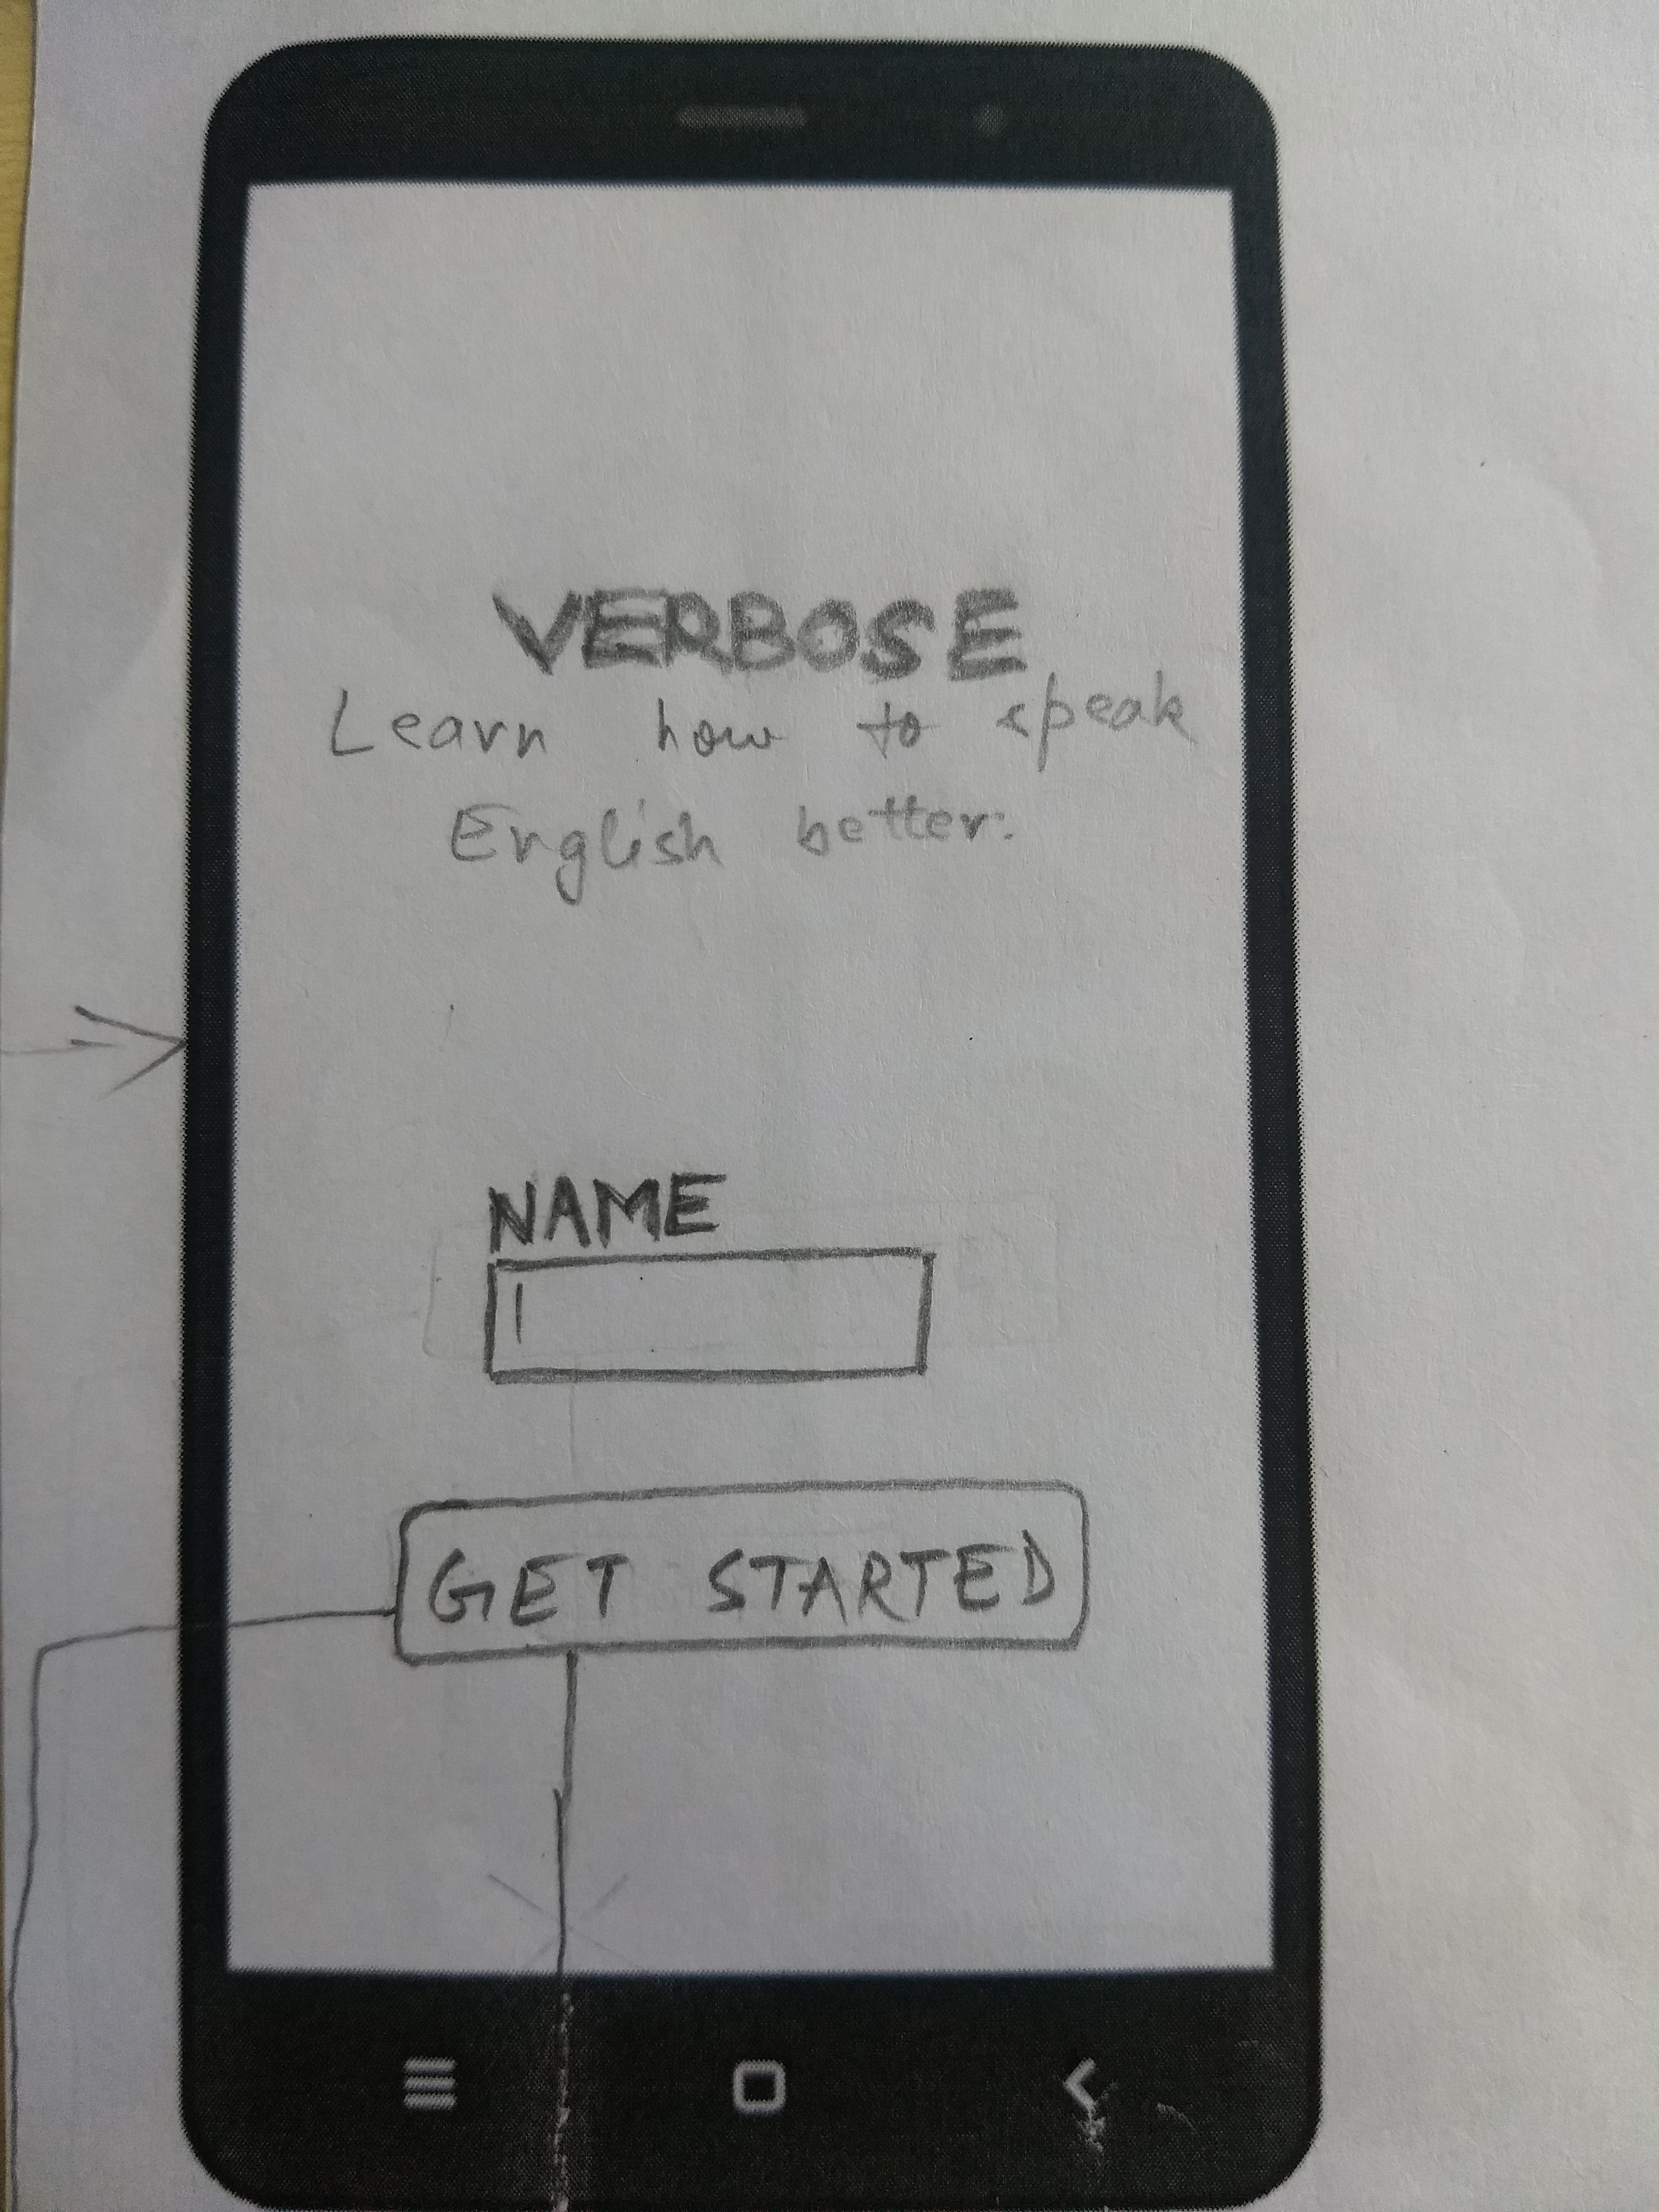 VERBOSE
Learn how to speak
English better.
NAME
GET STARTED